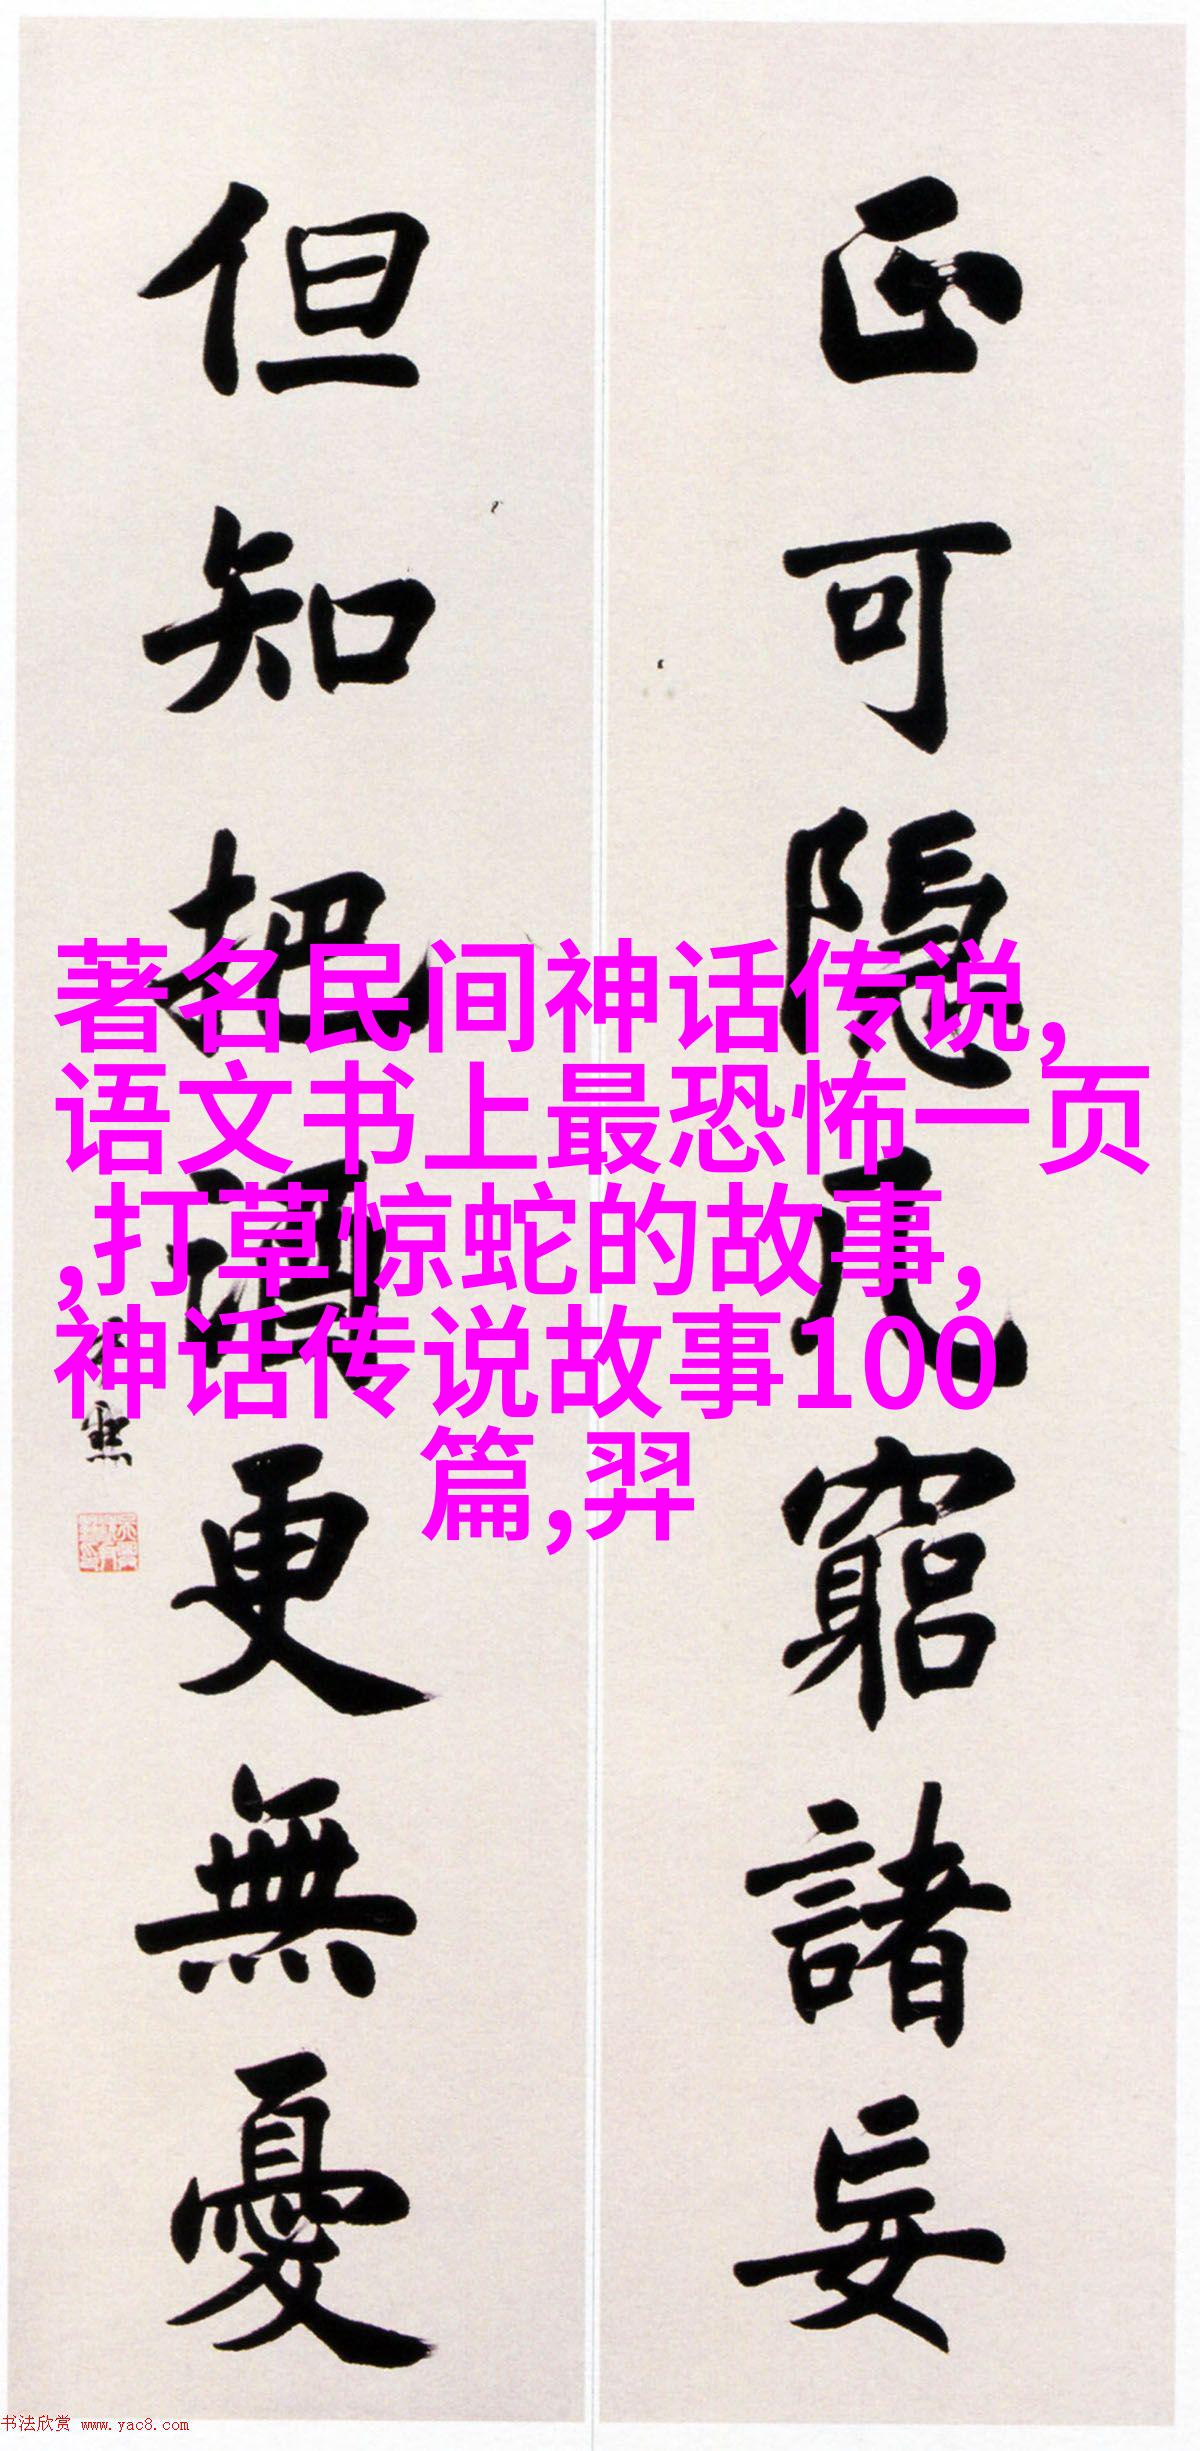 正可隱几窮諸妄
但知把酒更無憂
著名民间神话传说,
语文书上最恐怖一页
,打草惊蛇的故事,
神话传说故事100
篇,羿
书法欣赏 www.yac8.com